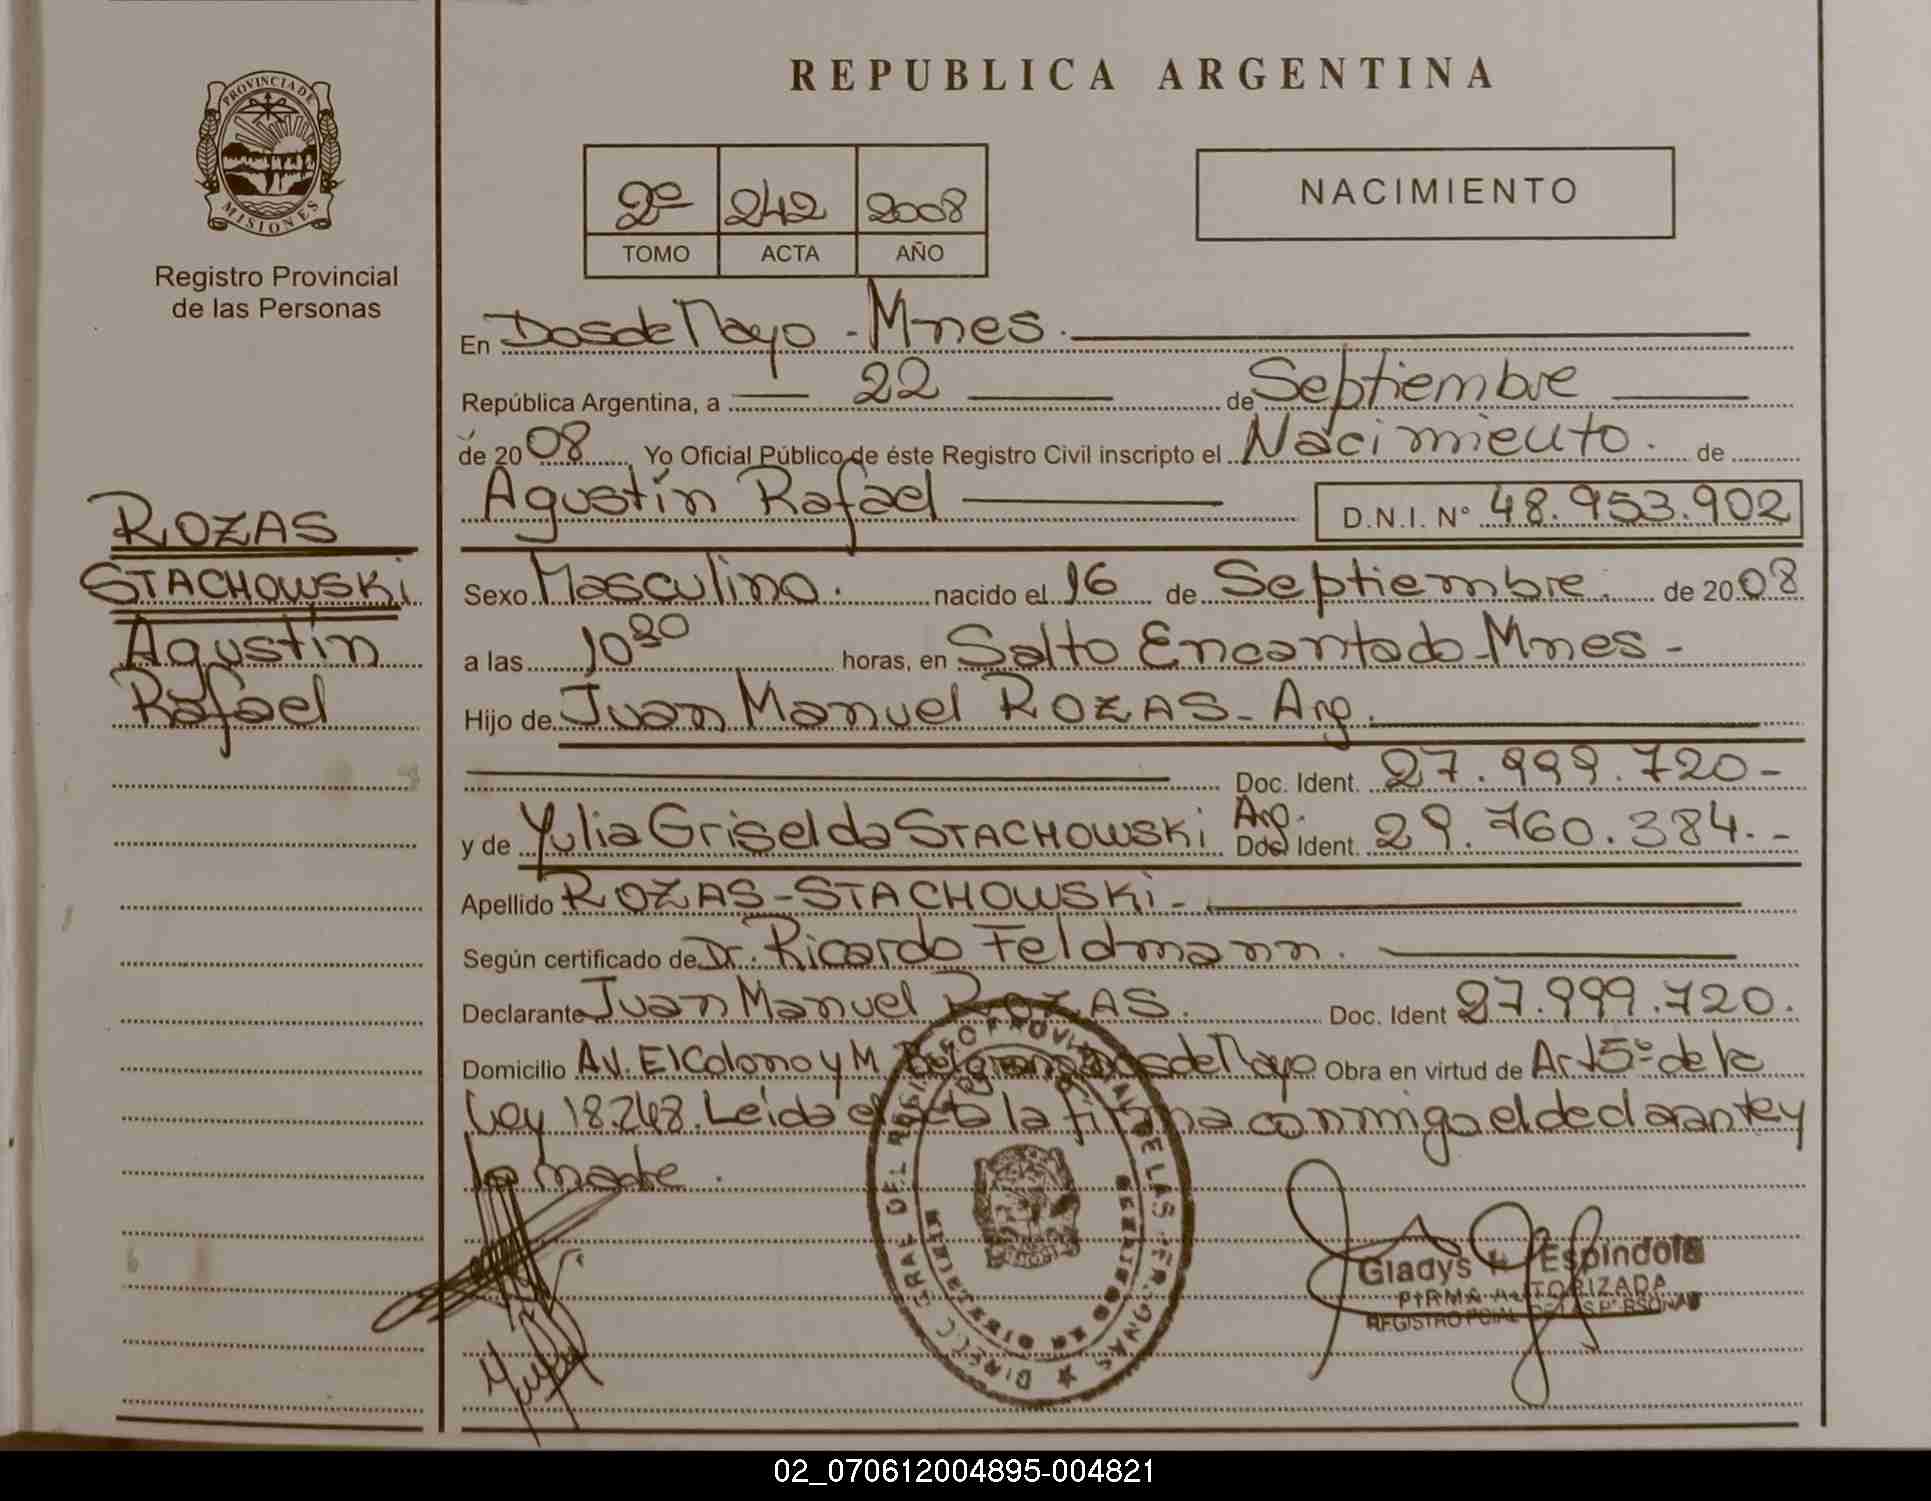 REPUBLICA ARGENTINA
PROVINCIA DE
MISIONES
Registro Provincial
de las Personas
2º 242 2008
TOMO ACTA AÑO
NACIMIENTO
En Dos de Mayo - Mnes.
República Argentina, a 22 de Septiembre
de 2008 Yo Oficial Público de éste Registro Civil inscripto el Nacimiento. de
Agustín Rafael D.N.I. N° 48.953.902
ROZAS
STACHOWSKi
Agustín
Rafael
Sexo Masculino. nacido el 16 de Septiembre. de 2008
a las 10 30 horas, en Salto Encantado-Mnes-
Hijo de Juan Manuel ROZAS- Arg.
Doc. Ident. 27.999.720-
y de Yulia Griselda STACHOWSKi Arg. Doc. Ident. 29.760.384.-
Apellido ROZAS-STACHOWSKi-
Según certificado de Dr. Ricardo Feldmann.
Declarante Juan Manuel ROZAS. Doc. Ident 27.999.720.
Domicilio AV. El Colono y M. Belgrano Dos de Mayo Obra en virtud de Art 5º de la
Ley 18.248. Leida el acta la firma conmigo el declarante y
la madre.
DIRECC. GRAL DEL REGISTRO PROVINCIAL DE LAS PERSONAS
Gladys Espindola
FIRMA AUTORIZADA
REGISTRO PCIAL DE LAS PERSONAS
02_070612004895-004821